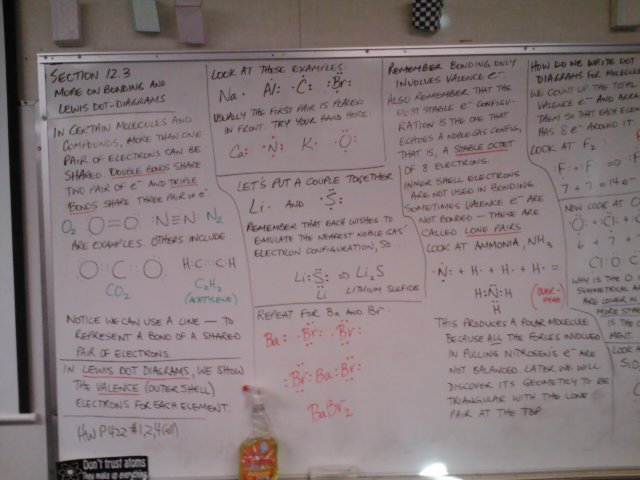 SECTION 12.3
MORE ON BONDING AND
LEWIS DOT-DIAGRAMS
IN CERTAIN MOLECULES AND
COMPOUNDS, MORE THAN ONE
PAIR OF ELECTRONS CAN BE
SHARED. DOUBLE BONDS SHARE
TWO PAIR OF e⁻ AND TRIPLE
BONDS SHARE THREE PAIR OF e⁻.
O₂ O=O N≡N N₂
ARE EXAMPLES. OTHERS INCLUDE
O::C::O H:C:::C:H
CO₂ C₂H₂
(ACETYLENE)
NOTICE WE CAN USE A LINE — TO
REPRESENT A BOND OF A SHARED
PAIR OF ELECTRONS.
IN LEWIS DOT DIAGRAMS, WE SHOW
THE VALENCE (OUTER SHELL)
ELECTRONS FOR EACH ELEMENT.
HW P422 #1,2,4
Don't trust atoms
They make up everything
LOOK AT THESE EXAMPLES:
Na Al C Br
USUALLY THE FIRST PAIR IS PLACED
IN FRONT. TRY YOUR HAND HERE:
Ca N K O
LET'S PUT A COUPLE TOGETHER
Li AND S
REMEMBER THAT EACH WISHES TO
EMULATE THE NEAREST NOBLE GAS'
ELECTRON CONFIGURATION, SO...
Li:S: ⇒ Li₂S
Li LITHIUM SULFIDE
REPEAT FOR Ba AND Br
Ba: Br: Br:
:Br:Ba:Br:
BaBr₂
REMEMBER BONDING ONLY
INVOLVES VALENCE e⁻.
ALSO REMEMBER THAT THE
MOST STABLE e⁻ CONFIGU-
RATION IS THE ONE THAT
ECHOES A NOBLE GAS CONFIG,
THAT IS, A STABLE OCTET
OF 8 ELECTRONS.
INNER SHELL ELECTRONS
ARE NOT USED IN BONDING.
SOMETIMES VALENCE e⁻ ARE
NOT BONDED — THESE ARE
CALLED LONE PAIRS
LOOK AT AMMONIA, NH₃
N + H· + H· + H· =
H:N:H
H
THIS PRODUCES A POLAR MOLECULE
BECAUSE ALL THE FORCES INVOLVED
IN PULLING NITROGEN'S e⁻ ARE
NOT BALANCED. LATER WE WILL
DISCOVER ITS GEOMETRY TO BE
TRIANGULAR WITH THE LONE
PAIR AT THE TOP.
HOW DO WE WRITE DOT
DIAGRAMS FOR MOLECU
WE COUNT UP THE TOTAL
VALENCE e⁻ AND ARRA
THEM SO THAT EACH ELE
HAS 8 e⁻ AROUND IT
LOOK AT F₂
F + F ⇒
7 + 7 = 14 e⁻
NOW LOOK AT O
O + Cl +
6 + 7 +
Cl O C
WHY IS THE O
SYMMETRICAL A
ARE LOWER
MORE STAB
IS THE
MENT.
LOOK A